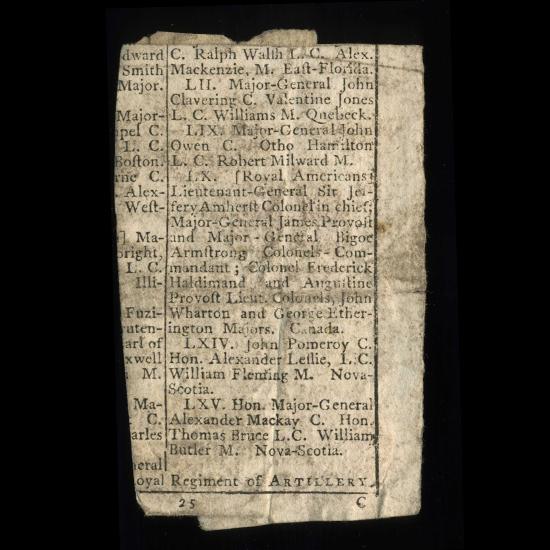 dward
Smith
Major.
Major-
pel C.
L. C.
Boston.
rne C.
Alex-
West-
] Ma-
bright,
L. C.
Illi-
Fuzi-
uten-
arl of
xwell
M.
Ma-
C.
arles
neral
oyal
C. Ralph Walſh L. C. Alex.
Mackenzie, M. Eaſt-Florida.
LII. Major-General John
Clavering C. Valentine Jones
L. C. Williams M. Quebeck.
LIX. Major-General John
Owen C. Otho Hamilton
L. C. Robert Milward M.
LX. [Royal Americans]
Lieutenant-General Sir Jef-
fery Amherſt Colonel in chief;
Major-General James Provoſt
and Major-General Bigoe
Armſtrong Colonels-Com-
mandant; Colonel Frederick
Haldimand and Auguſtine
Provoſt Lieut. Colonels, John
Wharton and George Ether-
ington Majors. Canada.
LXIV. John Pomeroy C.
Hon. Alexander Leſlie, L. C.
William Fleming M. Nova-
Scotia.
LXV. Hon. Major-General
Alexander Mackay C. Hon.
Thomas Bruce L.C. William
Butler M. Nova-Scotia.
Regiment of ARTILLERY.
25 C